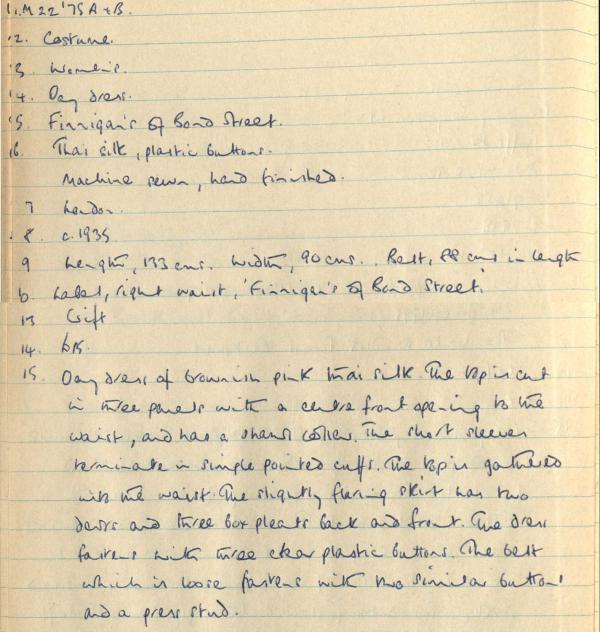 1. M 22 '75 A + B.
2. Costume.
3. Women's.
4. Day dress.
5. Finnigan's of Bond Street.
6. Thai silk, plastic buttons.
Machine sewn, hand finished.
7 London.
8. c. 1935
9 Length, 133 cms. Width, 90 cms. Belt, 88 cms in length
10 Label, right waist, 'Finnigan's of Bond Street.'
13 Gift
14.
15. Day dress of brownish pink thai silk. The top is cut
in three panels with a centre front opening to the
waist, and has a shawl collar. The short sleeves
terminate in simple pointed cuffs. The top is gathered
into the waist. The slightly flaring skirt has two
darts and three box pleats back and front. The dress
fastens with three clear plastic buttons. The belt
which is loose fastens with two similar buttons
and a press stud.